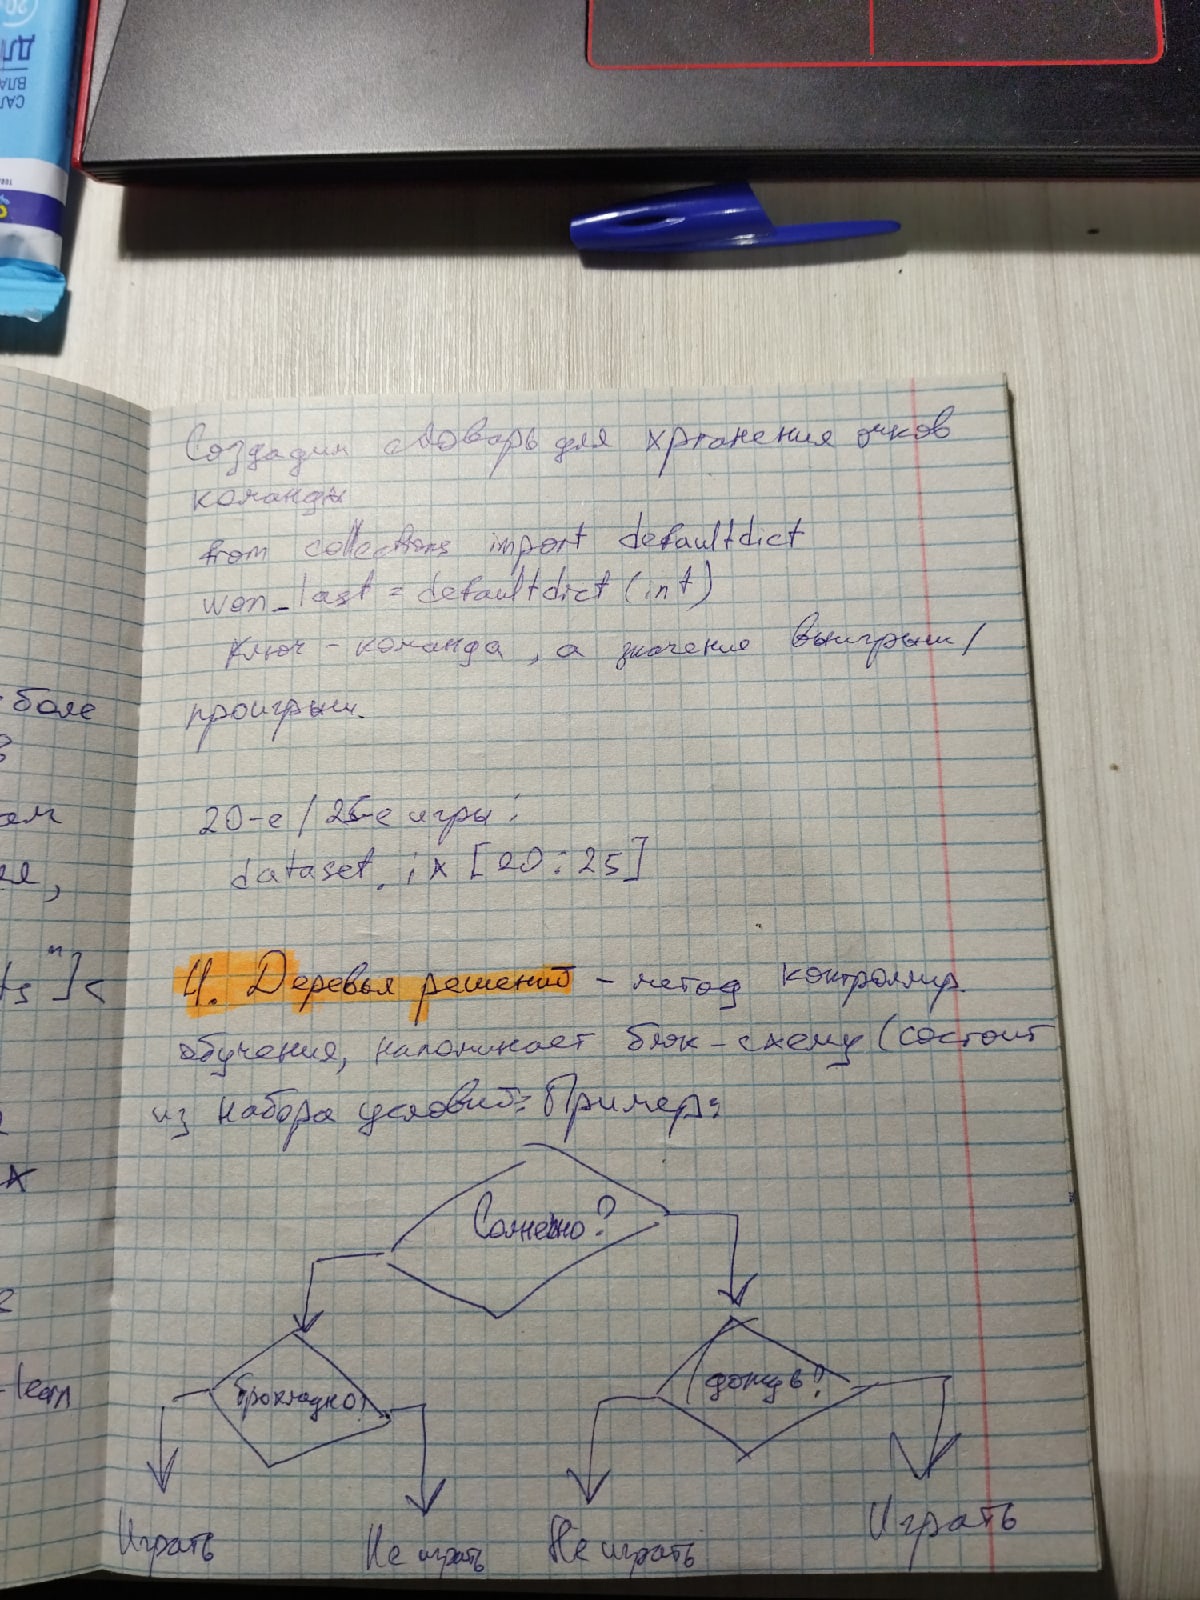 Создадим словарь для хранения очков
команды
from collections import defaultdict
won_last = defaultdict (int)
Ключ - команда, а значение выигрыш/
проигрыш.
20-е / 25-е игры:
dataset.ix [20:25]
4. Деревья решений - метод контролир.
обучения, напоминает блок-схему (состоит
из набора условий: Пример:
Солнечно?
Прохладно?
дождь?
Играть
Не играть
Не играть
Играть
боле
ts"]<
-learn